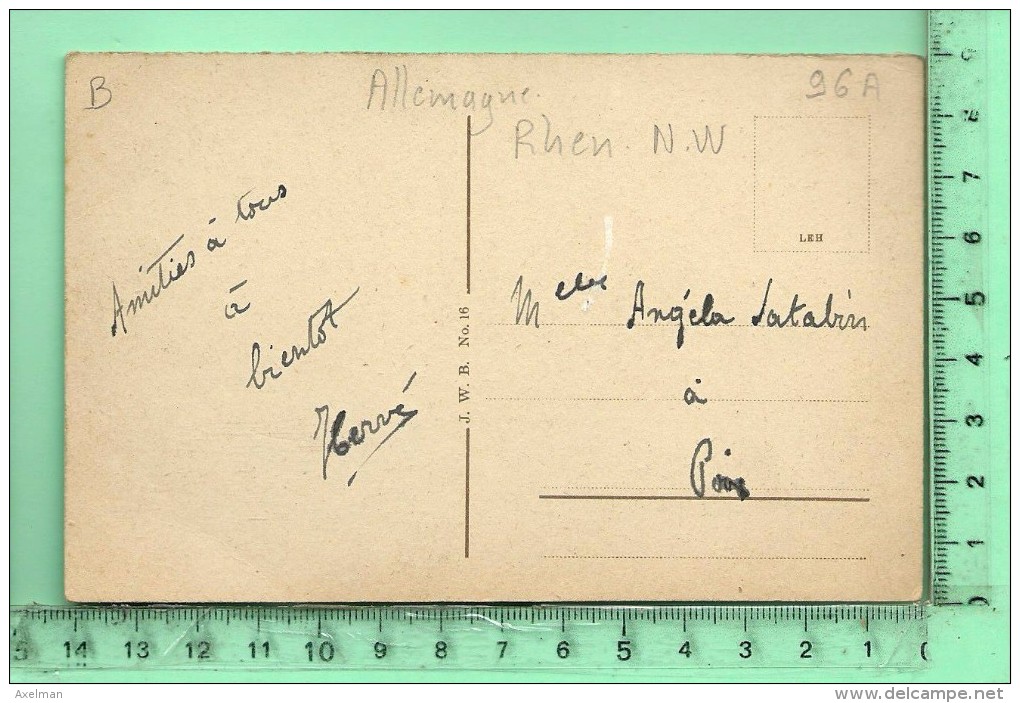 B
Allemagne.
96A
Rhen. N.W
LEH
Amitiés à tous
à
bientot
Hervé
J. W. B. No. 16
Melle Angéla
à
8
7
6
5
4
3
2
1
0
14 13 12 11 10 9 8 7 6 5 4 3 2 1
Axelman
www.delcampe.net